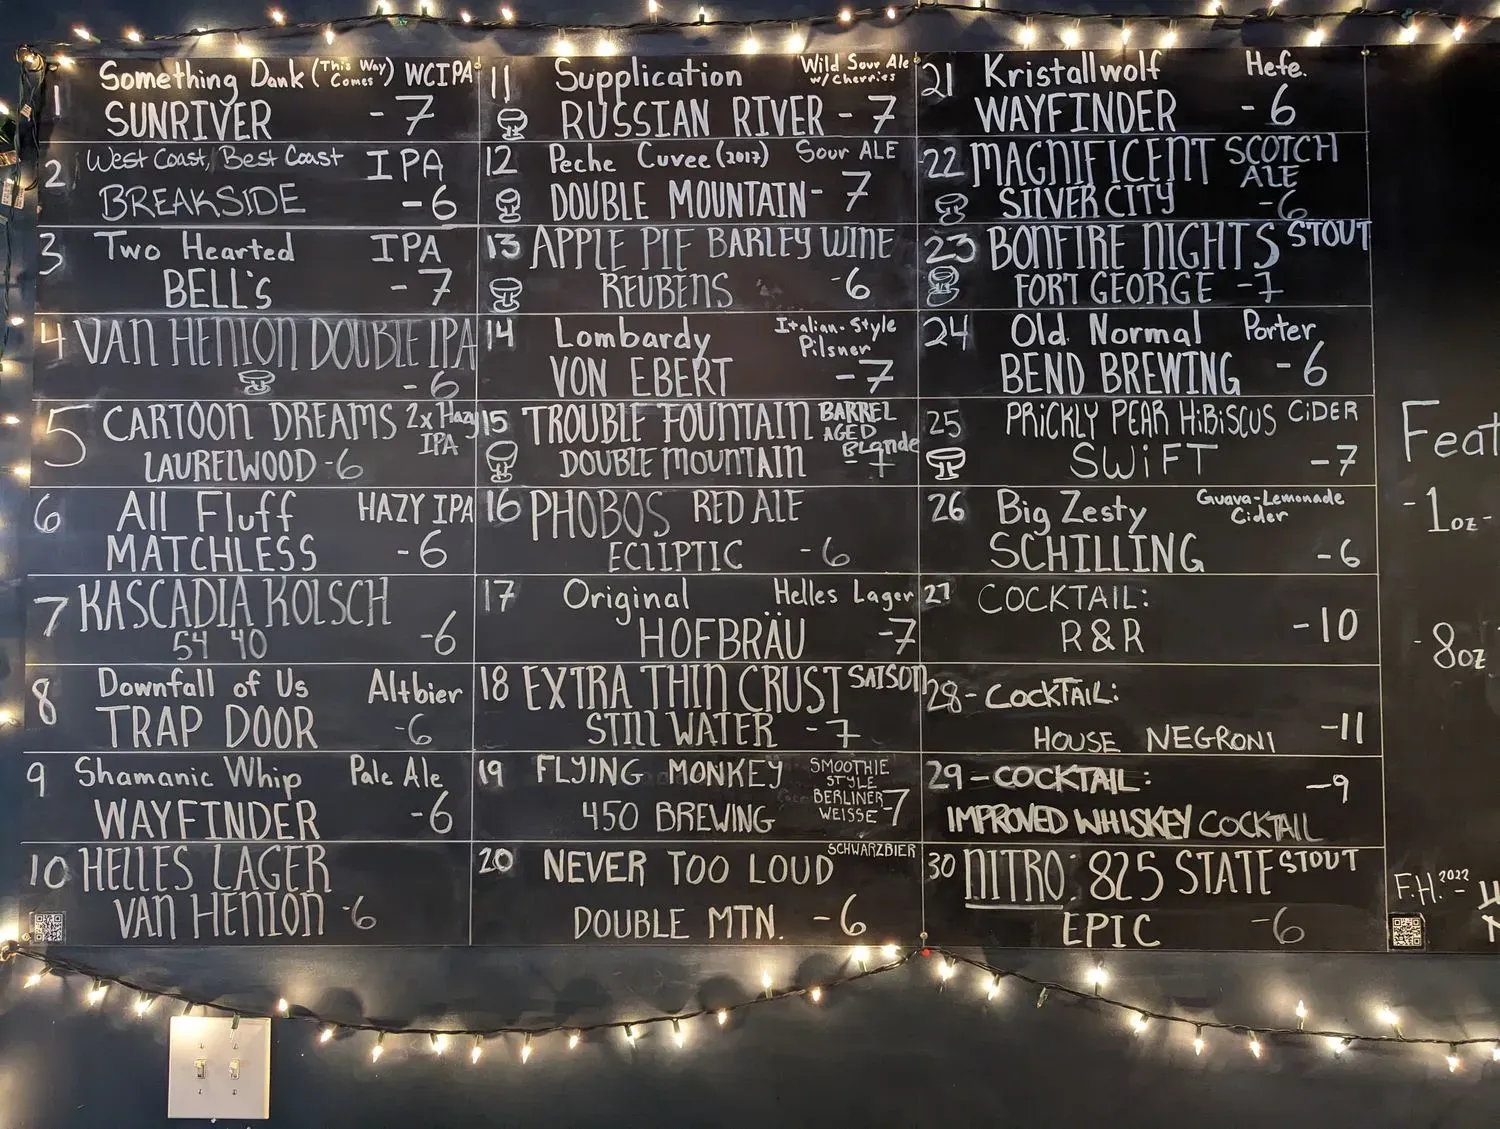 1 Something Dank (This Way Comes) WCIPA
SUNRIVER - 7
2 West Coast, Best Coast IPA
BREAKSIDE - 6
3 Two Hearted IPA
BELL'S - 7
4 VAN HENION DOUBLE IPA
- 6
5 CARTOON DREAMS 2x Hazy IPA
LAURELWOOD - 6
6 All Fluff HAZY IPA
MATCHLESS - 6
7 KASCADIA KOLSCH
54 40 - 6
8 Downfall of Us Altbier
TRAP DOOR - 6
9 Shamanic Whip Pale Ale
WAYFINDER - 6
10 HELLES LAGER
VAN HENION - 6
11 Supplication Wild Sour Ale w/ Cherries
RUSSIAN RIVER - 7
12 Peche Cuvee (2017) Sour ALE
DOUBLE MOUNTAIN - 7
13 APPLE PIE BARLEY WINE
REUBENS - 6
14 Lombardy Italian-Style Pilsner
VON EBERT - 7
15 TROUBLE FOUNTAIN BARREL AGED Blonde
DOUBLE MOUNTAIN - 7
16 PHOBOS RED ALE
ECLIPTIC - 6
17 Original Helles Lager
HOFBRÄU - 7
18 EXTRA THIN CRUST SAISON
STILLWATER - 7
19 FLYING MONKEY SMOOTHIE STYLE BERLINER WEISSE
450 BREWING - 7
20 NEVER TOO LOUD SCHWARZBIER
DOUBLE MTN. - 6
21 Kristallwolf Hefe.
WAYFINDER - 6
22 MAGNIFICENT SCOTCH ALE
SILVER CITY - 6
23 BONFIRE NIGHTS STOUT
FORT GEORGE - 7
24 Old Normal Porter
BEND BREWING - 6
25 PRICKLY PEAR HiBiSCUS CiDER
SWiFT - 7
26 Big Zesty Guava-Lemonade Cider
SCHILLING - 6
27 COCKTAIL:
R&R - 10
28 - COCKTAIL:
HOUSE NEGRONI - 11
29 - COCKTAIL: - 9
IMPROVED WHISKEY COCKTAIL
30 NITRO: 825 STATE STOUT
EPIC - 6
Feat
- 1oz -
- 8oz
F.H. 2022